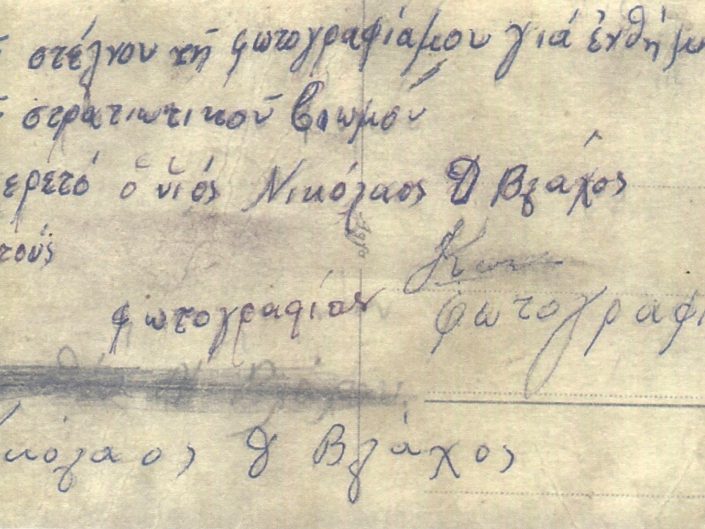 στέλνου τή φωτογραφίαμου γιά ἐνθήμ
στρατιωτικοῦ βιωμού
ερετό ὁ υἱός Νικόλαος Δ Βλάχος
τούς
φωτογραφίας
φωτογραφι
κόλαος Δ Βλάχος